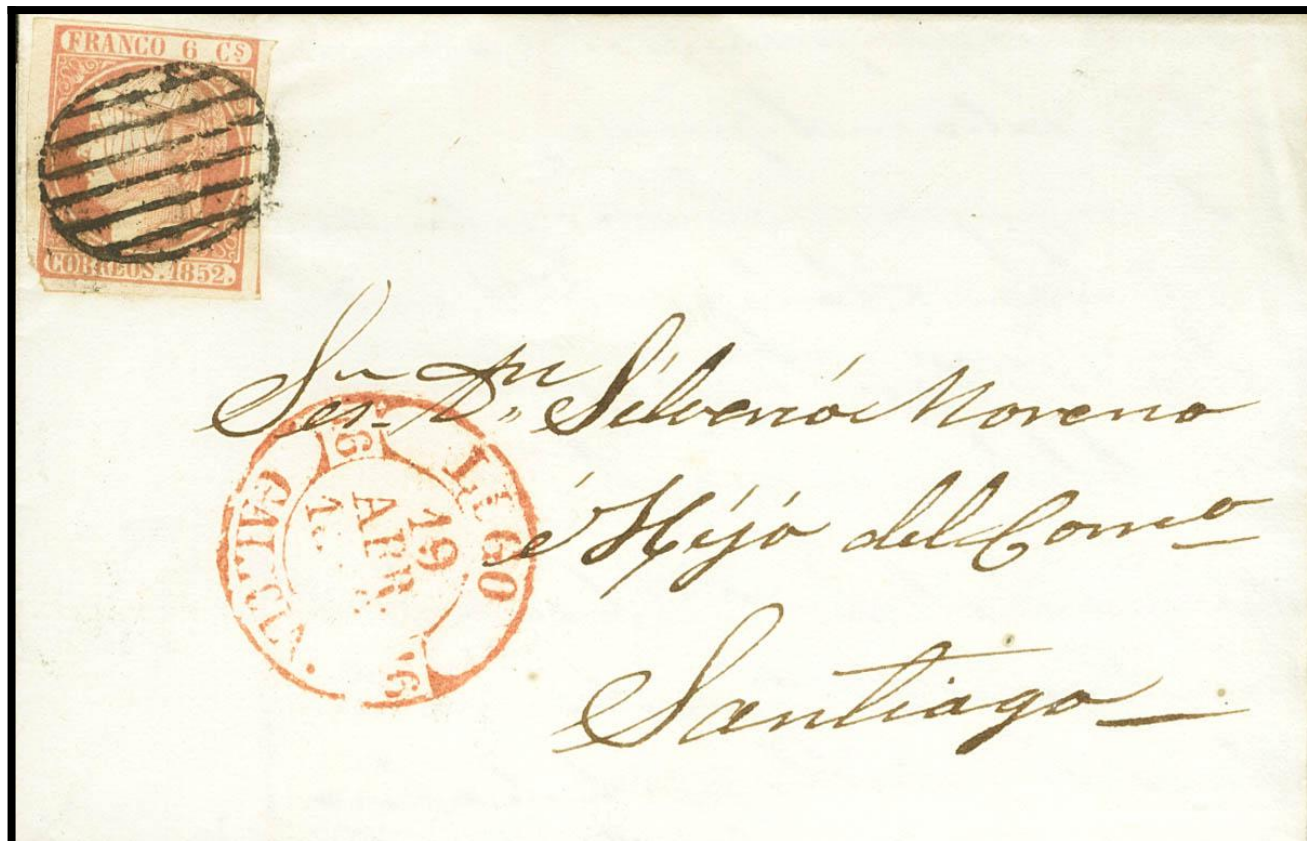 FRANCO 6 Cs
CORREOS. 1852.
Sres. Dn Silverió Moreno
é Hijó del Comº
Santiago
LUGO
19
ABR.
GALICIA.